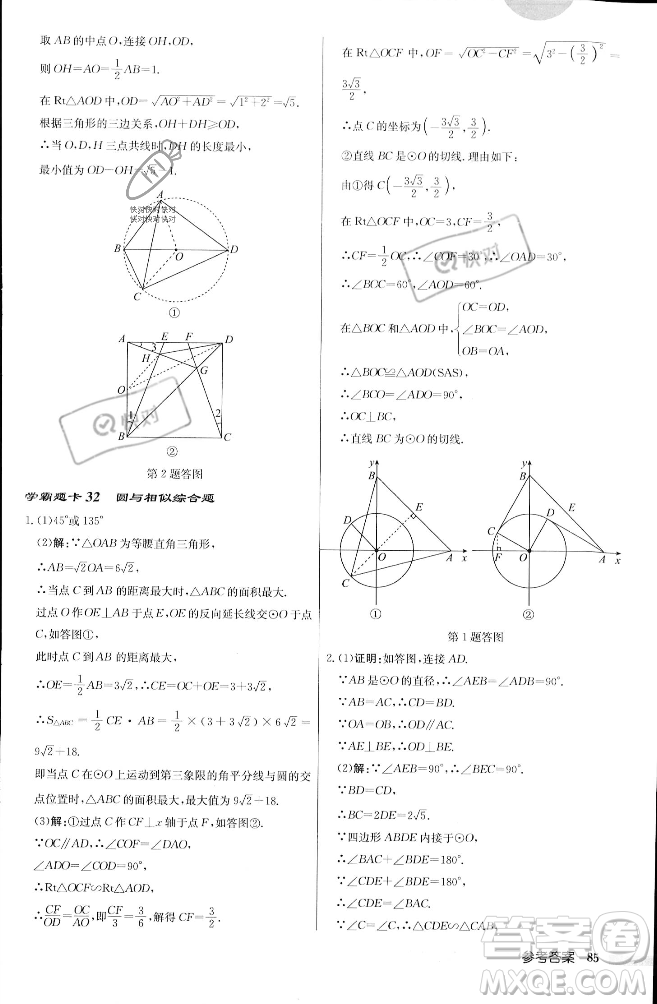 取 AB 的中点 O,连接 OH,OD,
则 OH=AO=1/2AB=1.
在 Rt△AOD 中,OD=√(AO²+AD²)=√(1²+2²)=√5.
根据三角形的三边关系,OH+DH≥OD,
∴当 O,D,H 三点共线时,DH 的长度最小,
最小值为 OD−OH=√5−1.
A
快对快对快对
快对快对快对
B
O
D
C
①
A
E
F
D
3
H
G
O
1
2
B
C
②
快对
第 2 题答图
学霸题卡 32 圆与相似综合题
1.(1)45°或 135°
(2)解:∵△OAB 为等腰直角三角形,
∴AB=√2OA=6√2,
∴当点 C 到 AB 的距离最大时,△ABC 的面积最大.
过点 O 作 OE⊥AB 于点 E,OE 的反向延长线交⊙O 于点
C,如答图①,
此时点 C 到 AB 的距离最大,
∴OE=1/2AB=3√2,∴CE=OC+OE=3+3√2,
∴S△ABC=1/2CE·AB=1/2×(3+3√2)×6√2=
9√2+18.
即当点 C 在⊙O 上运动到第三象限的角平分线与圆的交
点位置时,△ABC 的面积最大,最大值为 9√2+18.
(3)解:①过点 C 作 CF⊥x 轴于点 F,如答图②.
∵OC∥AD,∴∠COF=∠DAO,
∵∠ADO=∠CFO=90°,
∴Rt△OCF∽Rt△AOD,
∴CF/OD=OC/AO,即CF/3=3/6,解得 CF=3/2.
在 Rt△OCF 中,OF=√(OC²−CF²)=√(3²−(3/2)²)=
3√3/2,
∴点 C 的坐标为(−3√3/2,3/2).
②直线 BC 是⊙O 的切线.理由如下:
由①得 C(−3√3/2,3/2),
在 Rt△OCF 中,OC=3,CF=3/2,
∴CF=1/2OC,∴∠COF=30°,∴∠OAD=30°,
∴∠BOC=60°,∠AOD=60°.
在△BOC 和△AOD 中,{OC=OD, ∠BOC=∠AOD, OB=OA,
∴△BOC≌△AOD(SAS),
∴∠BCO=∠ADO=90°,
∴OC⊥BC,
∴直线 BC 为⊙O 的切线.
快对
y
B
E
D
O
A
x
C
①
y
B
D
C
F
O
A
x
②
第 1 题答图
2.(1)证明:如答图,连接 AD.
∵AB 是⊙O 的直径,∴∠AEB=∠ADB=90°.
∵AB=AC,∴CD=BD.
∵OA=OB,∴OD∥AC.
∵AE⊥BE,∴OD⊥BE.
(2)解:∵∠AEB=90°,∴∠BEC=90°.
∵BD=CD,
∴BC=2DE=2√5.
∵四边形 ABDE 内接于⊙O,
∴∠BAC+∠BDE=180°.
∵∠CDE+∠BDE=180°,
∴∠CDE=∠BAC.
∵∠C=∠C,∴△CDE∽△CAB,
参考答案 85
答案圈
MXQE.COM